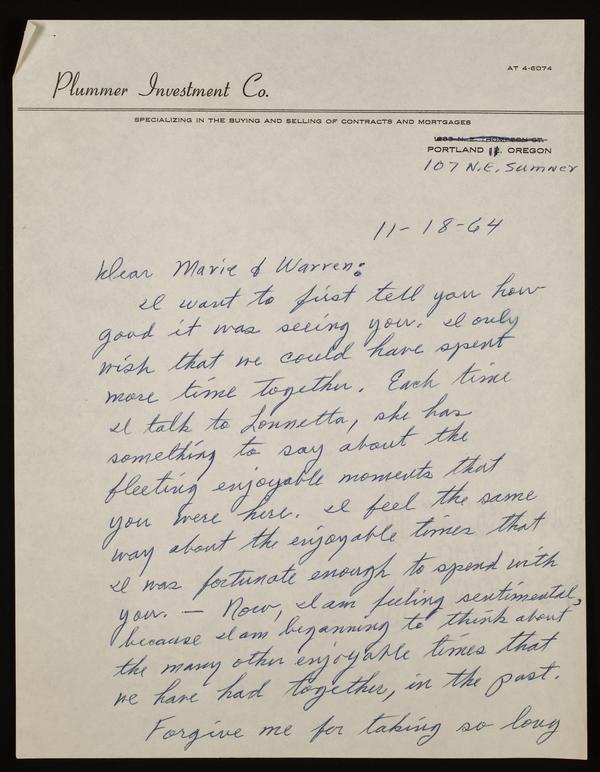 AT 4-6074
Plummer Investment Co.
SPECIALIZING IN THE BUYING AND SELLING OF CONTRACTS AND MORTGAGES
N. E. THOMPSON ST.
PORTLAND 11, OREGON
107 N.E. Sumner
11-18-64
Dear Marie & Warren:
I want to first tell you how
good it was seeing you. I only
wish that we could have spent
more time together. Each time
I talk to Lonnetta, she has
something to say about the
fleeting enjoyable moments that
you were here. I feel the same
way about the enjoyable times that
I was fortunate enough to spend with
you. — Now, I am feeling sentimental,
because I am beganning to think about
the many other enjoyable times that
we have had together, in the past.
Forgive me for taking so long